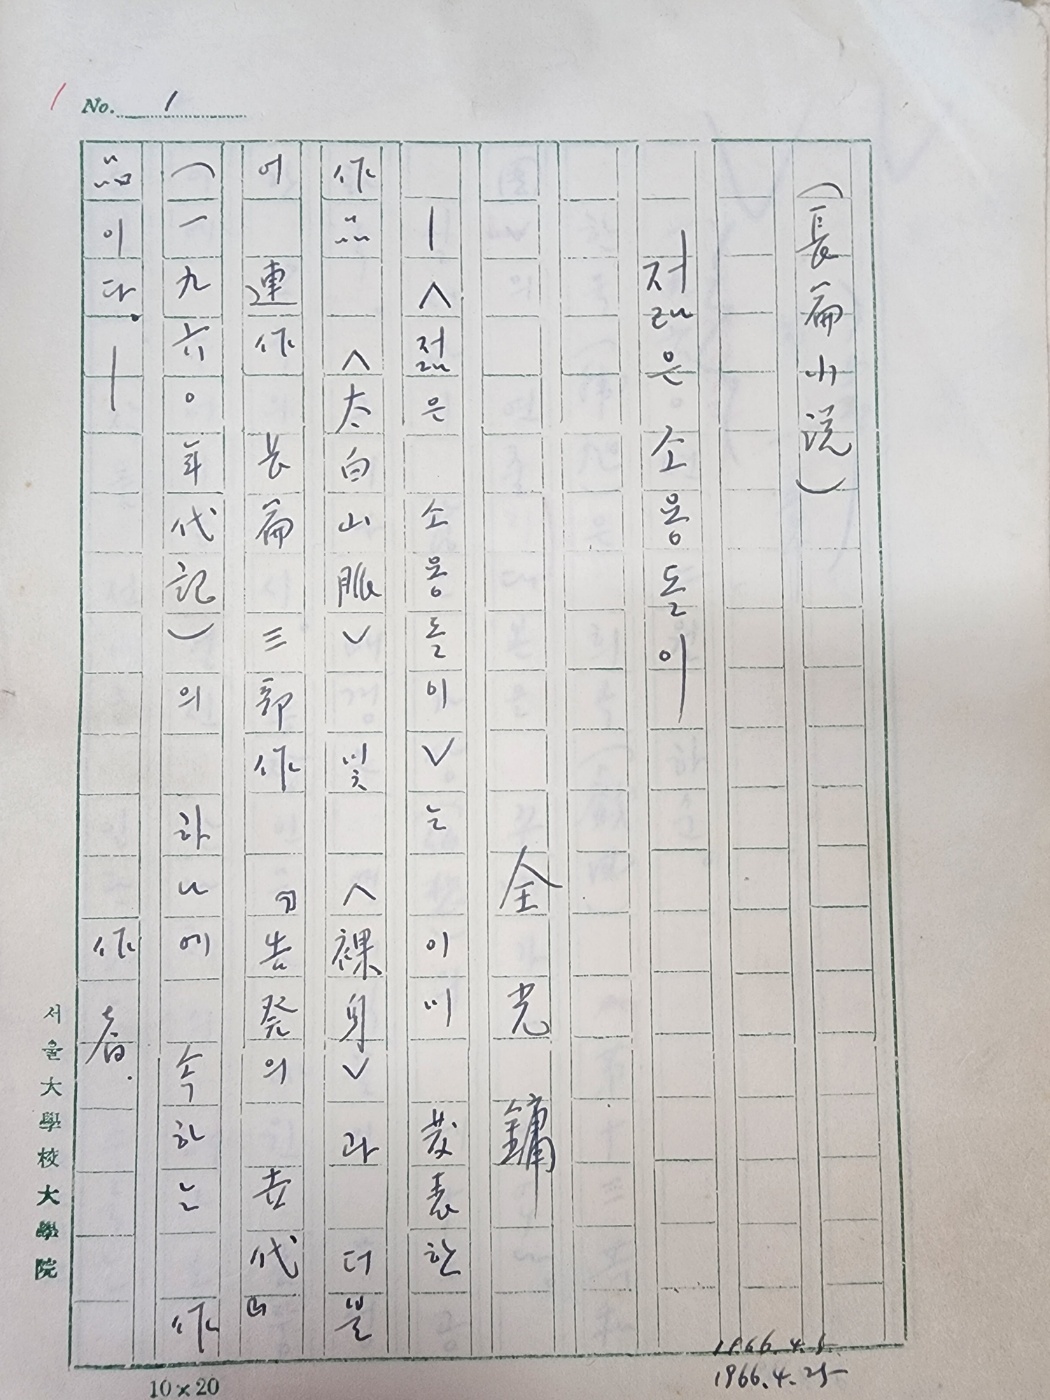 No. 1
(長篇小説)
젊은 소용돌이
全光鏞
―<젊은 소용돌이>는 이미 發表한
作品 <太白山脈> 및 <裸身>과 더불
어 連作 長篇 三部作 『告発의 世代』
(一九六○年代記)의 하나에 속하는 作
品이다.― 作者.
서울大學校大學院
10×20
1966.4.5.
1966.4.25